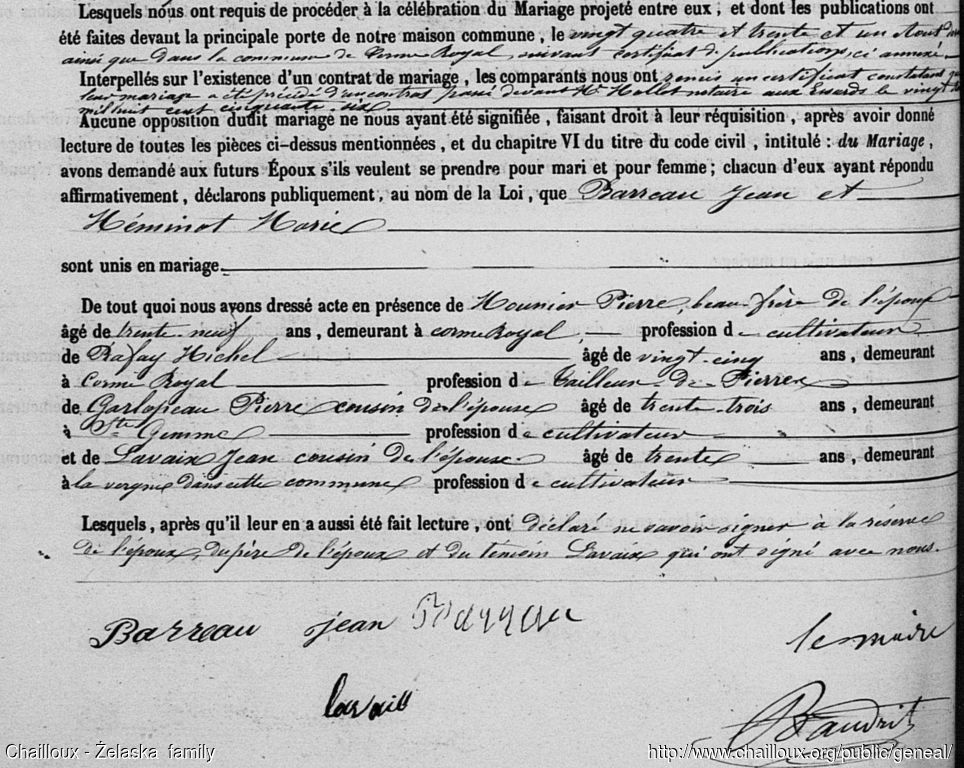 Lesquels nous ont requis de procéder à la célébration du Mariage projeté entre eux, et dont les publications ont
été faites devant la principale porte de notre maison commune, le vingt quatre et trente et un Aout
ainsi que dans la commune de Corme Royal, suivant certificat de publications, ci annexé
Interpellés sur l'existence d'un contrat de mariage, les comparants nous ont remis un certificat constatant que
leur mariage a été précédé d'un contrat passé devant Me notaire aux Essards le vingt
mil huit cent cinquante six
Aucune opposition dudit mariage ne nous ayant été signifiée, faisant droit à leur réquisition, après avoir donné
lecture de toutes les pièces ci-dessus mentionnées, et du chapitre VI du titre du code civil, intitulé : du Mariage,
avons demandé aux futurs Époux s'ils veulent se prendre pour mari et pour femme ; chacun d'eux ayant répondu
affirmativement, déclarons publiquement, au nom de la Loi, que Barreau Jean et
Héminot Marie
sont unis en mariage.
De tout quoi nous avons dressé acte en présence de Mounier Pierre, beau-frère de l'époux
âgé de trente neuf ans, demeurant à corme Royal, profession de cultivateur
de Rafay Michel âgé de vingt-cinq ans, demeurant
à Corme Royal profession de tailleur de Pierre
de Garlopeau Pierre cousin de l'épouse âgé de trente-trois ans, demeurant
à Ste Gemme profession de cultivateur
et de Lavaix Jean cousin de l'épouse âgé de trente ans, demeurant
à la vergne dans cette commune profession de cultivateur
Lesquels, après qu'il leur en a aussi été fait lecture, ont déclaré ne savoir signer à la réserve
de l'époux, du père de l'époux et du témoin Lavaix qui ont signé avec nous.
Barreau jean Barreau
le maire
lavaix
Baudrit
Chailloux - Żelaska family http://www.chailloux.org/public/geneal/